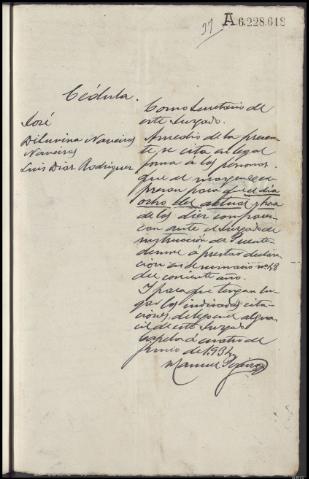 27
A6.228.618
Cédula.
José
Diluvina Naveiras
Naveiras
Luis Diaz Rodriguez
Como Secretario de
este Juzgado.
A medio de la presen
te, se cita en legal
forma a los
que al margen se ex
presan para que el dia
ocho del actual y hora
de las diez comparez
can ante el Juzgado de
instrucción de Puente
deume á prestar declara
cion en sumario nº 48
del corriente año.
Y para que tengan lu
gar las indicadas cita
ciones,
cil de este Juzgado
Capela á cuatro de
Junio de 1934
Manuel